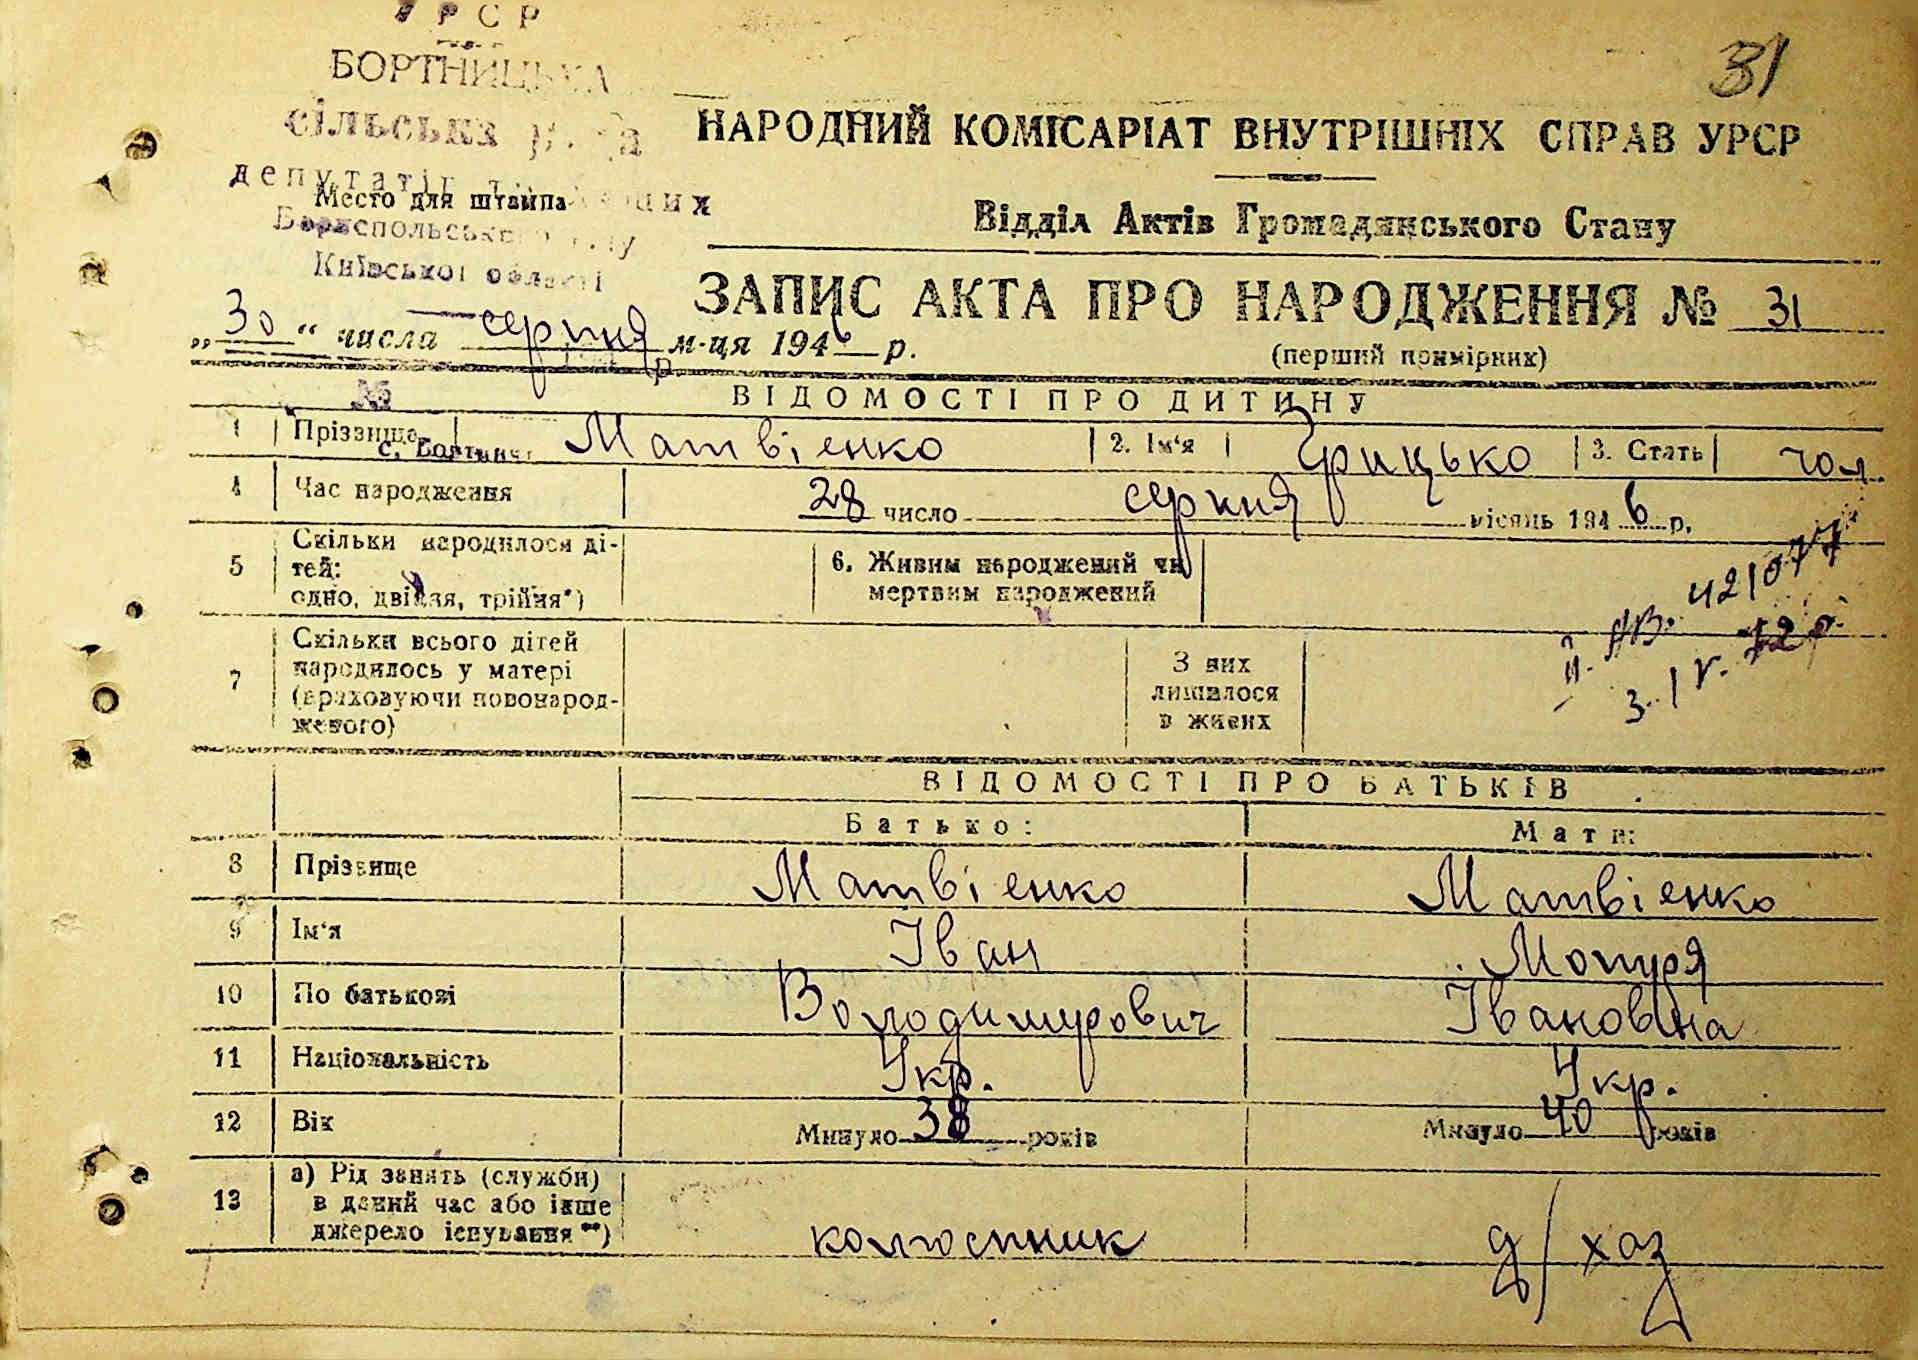 УРСР
БОРТНИЦЬКА
сільська рада
депутатів трудящих
Место для штампа
Бориспольського р-ну
Київської області
31
НАРОДНИЙ КОМІСАРІАТ ВНУТРІШНІХ СПРАВ УРСР
Відділ Актів Громадянського Стану
ЗАПИС АКТА ПРО НАРОДЖЕННЯ № 31
(перший примірник)
„30“ числа серпня м-ця 1946 р.
р.
№
ВІДОМОСТІ ПРО ДИТИНУ
1 Прізвище Матвіенко 2. Ім‘я Грицько 3. Стать чол
с. Бортничі
4 Час народження 28 число серпня місяць 1946 р.
5 Скільки народилося ді-
тей:
одно, двійня, трійня*)
6. Живим народжений чи
мертвим народжений
7 Скільки всього дітей
народилось у матері
(враховуючи новонарод-
женого)
З них
лишилося
в живих
АВ. 421077
3. IV. 72 р.
ВІДОМОСТІ ПРО БАТЬКІВ
Батько: Мати:
8 Прізвище Матвіенко Матвіенко
9 Ім‘я Іван Мотуря
10 По батькові Володимирович Івановна
11 Національність Укр. Укр.
12 Вік Минуло 38 років Минуло 40 років
13 а) Рід занять (служби)
в даний час або інше
джерело існування**)
колгоспник д/хаз